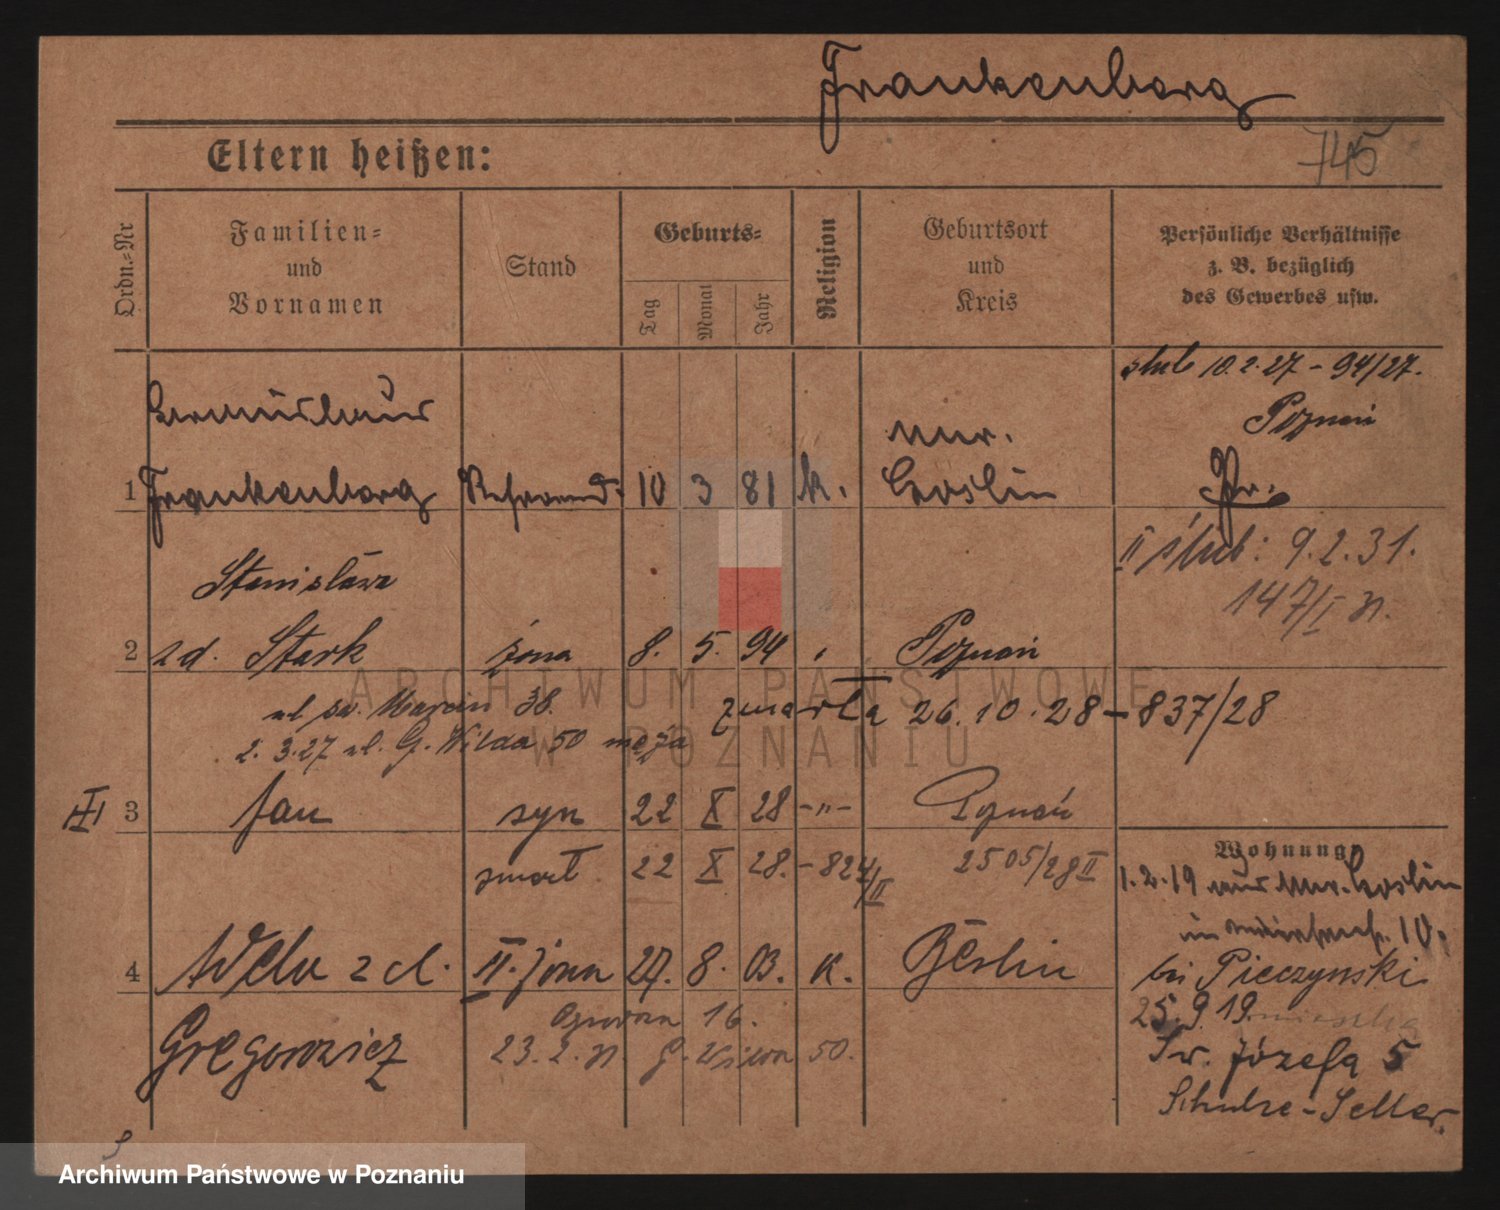 Frankenberg
745
Eltern heißen:
Ordn.-Nr
Familien-
und
Vornamen
Stand
Geburts-
Tag
Monat
Jahr
Religion
Geburtsort
und
Kreis
Persönliche Verhältnisse
z. B. bezüglich
des Gewerbes usw.
ślub 10.2.27 - 94/27.
Poznań
mur.
1 Frankenberg 10 3 81 k. Goslin Pr.
II ślub: 9.2.31.
147/I
Stanisława
2 zd. Stark żona 8. 5. 94 Poznań
ul. św. Marcin 38. zmarła 26.10.28 - 837/28
2.3.27 ul. G. Wilda 50 męża
III 3 Jan syn 22 X 28 -"- Poznań
Wohnung:
zmarł 22 X 28. - 824/II 2505/28 II
1.2.19 aus Mur. Goslin
10.
4 Wela zd. II. żona 27. 8. 03. k. Berlin
bei Pieczynski
Gregorowicz
16.
25.9.19
23.2. G. Wilda 50.
Św. Józefa 5
Schulze-Seller.
ARCHIWUM PAŃSTWOWE
W POZNANIU
Archiwum Państwowe w Poznaniu